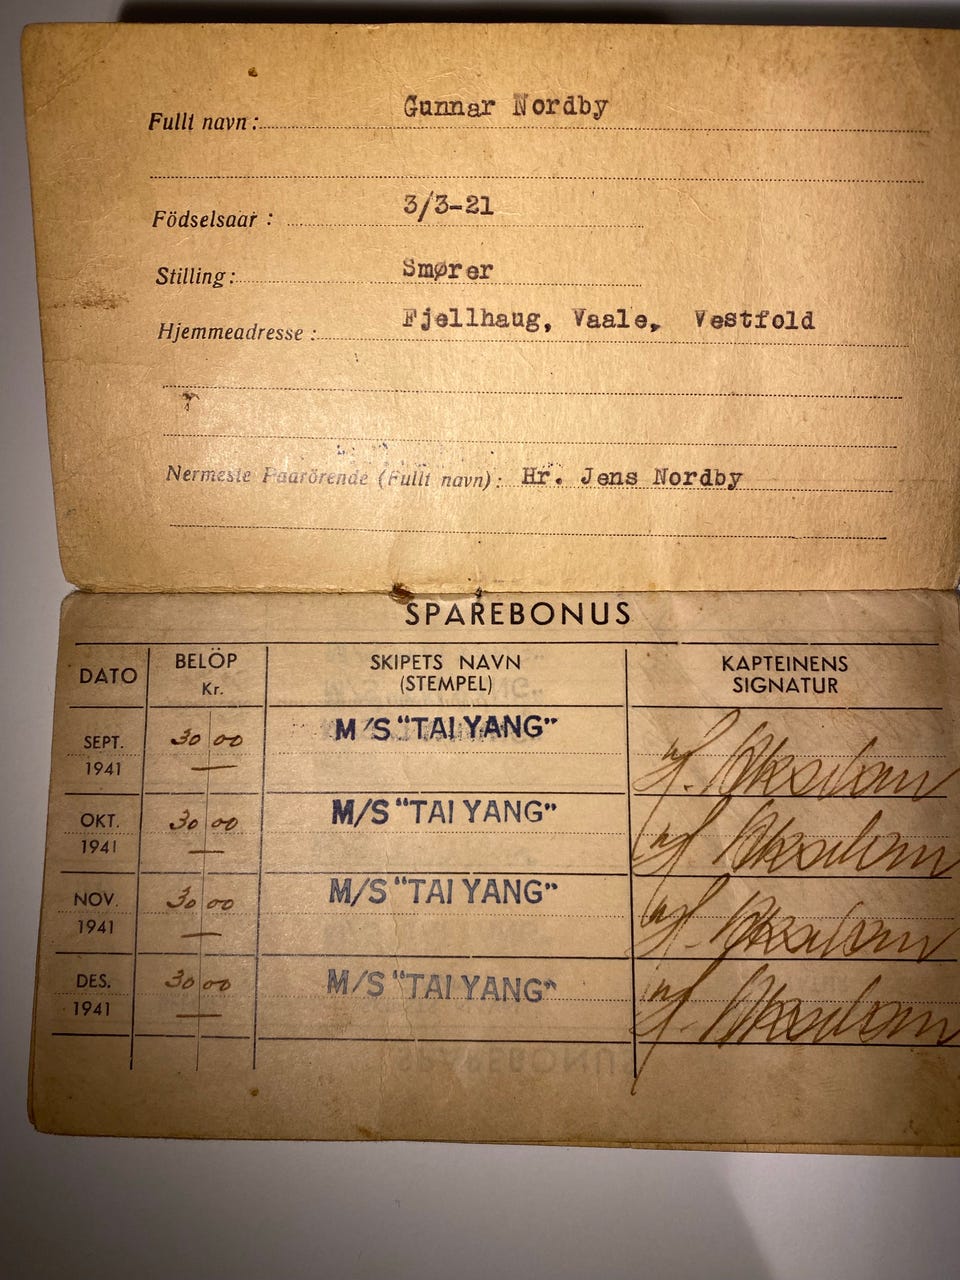 Fullt navn: Gunnar Nordby
Födselsaar: 3/3-21
Stilling: Smører
Hjemmeadresse: Fjellhaug, Vaale, Vestfold
Nermeste Paarörende (Fullt navn): Hr. Jens Nordby
SPAREBONUS
DATO BELÖP Kr. SKIPETS NAVN (STEMPEL) KAPTEINENS SIGNATUR
SEPT. 1941 30 00 M/S "TAI YANG"
OKT. 1941 30 00 M/S "TAI YANG"
NOV. 1941 30 00 M/S "TAI YANG"
DES. 1941 30 00 M/S "TAI YANG"